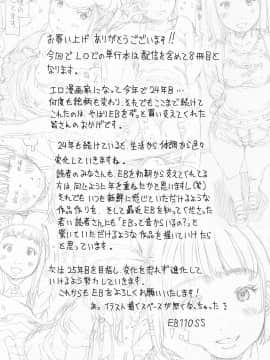 お買い上げ ありがとうございます!!
今回で LOでの単行本は配信を含めて8冊目と
なります。
エロ漫画家になって今年で24年目…
何度も絵柄も変わり、それでもここまで続けて
これたのは、やはりEBをずっと買い支えてくれた
皆さんのおかげです。
24年も続けていると 生活から体調から色々
変化していきますね。
読者のみなさんも、EBを初期から支えてくれてる
方は同じように年を重ねたかと思います (笑)
それでもいつも新鮮に感じていただけるような
作品作りを、そして最近EBを知ってくださった
若い読者さんにも「EBって昔からいるの?」と
驚いていただけるような作品を描いていけたら
と思っています。
次は25年目を目指し変化を恐れず進化して
いけるよう努力していきます。
これからも EBをよろしくお願いいたします!
あっ イラスト描くスペースが無くなっちゃった
EB110SS